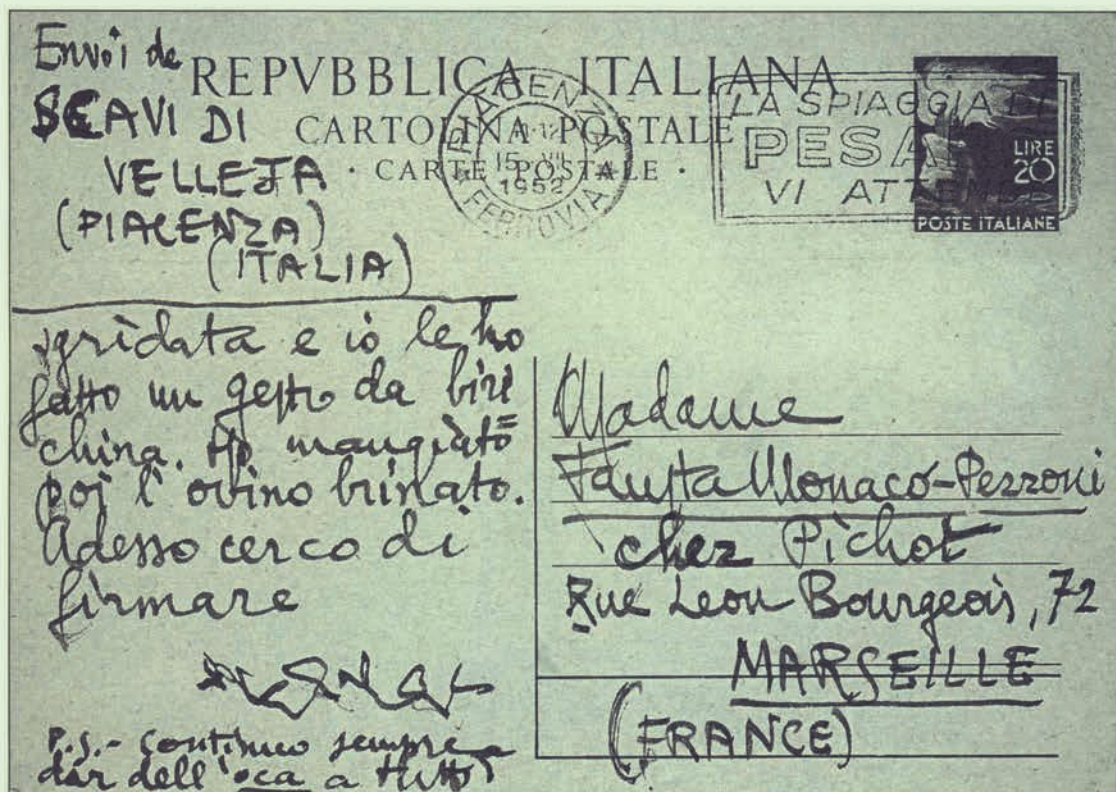 Envoi de
SCAVI DI
VELLEJA
(PIACENZA)
(ITALIA)
REPVBBLICA ITALIANA
CARTOLINA POSTALE
· CARTE POSTALE ·
PIACENZA
15 VII
1952
FERROVIA
LA SPIAGGIA DI
PESARO
VI ATTENDE
LIRE
20
POSTE ITALIANE
sgridata e io le ho
fatto un gesto da biri
china. Ho mangiato
poi l'ovino brinato.
Adesso cerco di
firmare
P.S.- Continuo sempre a
dar dell'oca a tutti
Madame
Fausta Monaco-Pezzoni
chez Pichot
Rue Leon Bourgeois, 72
MARSEILLE
(FRANCE)